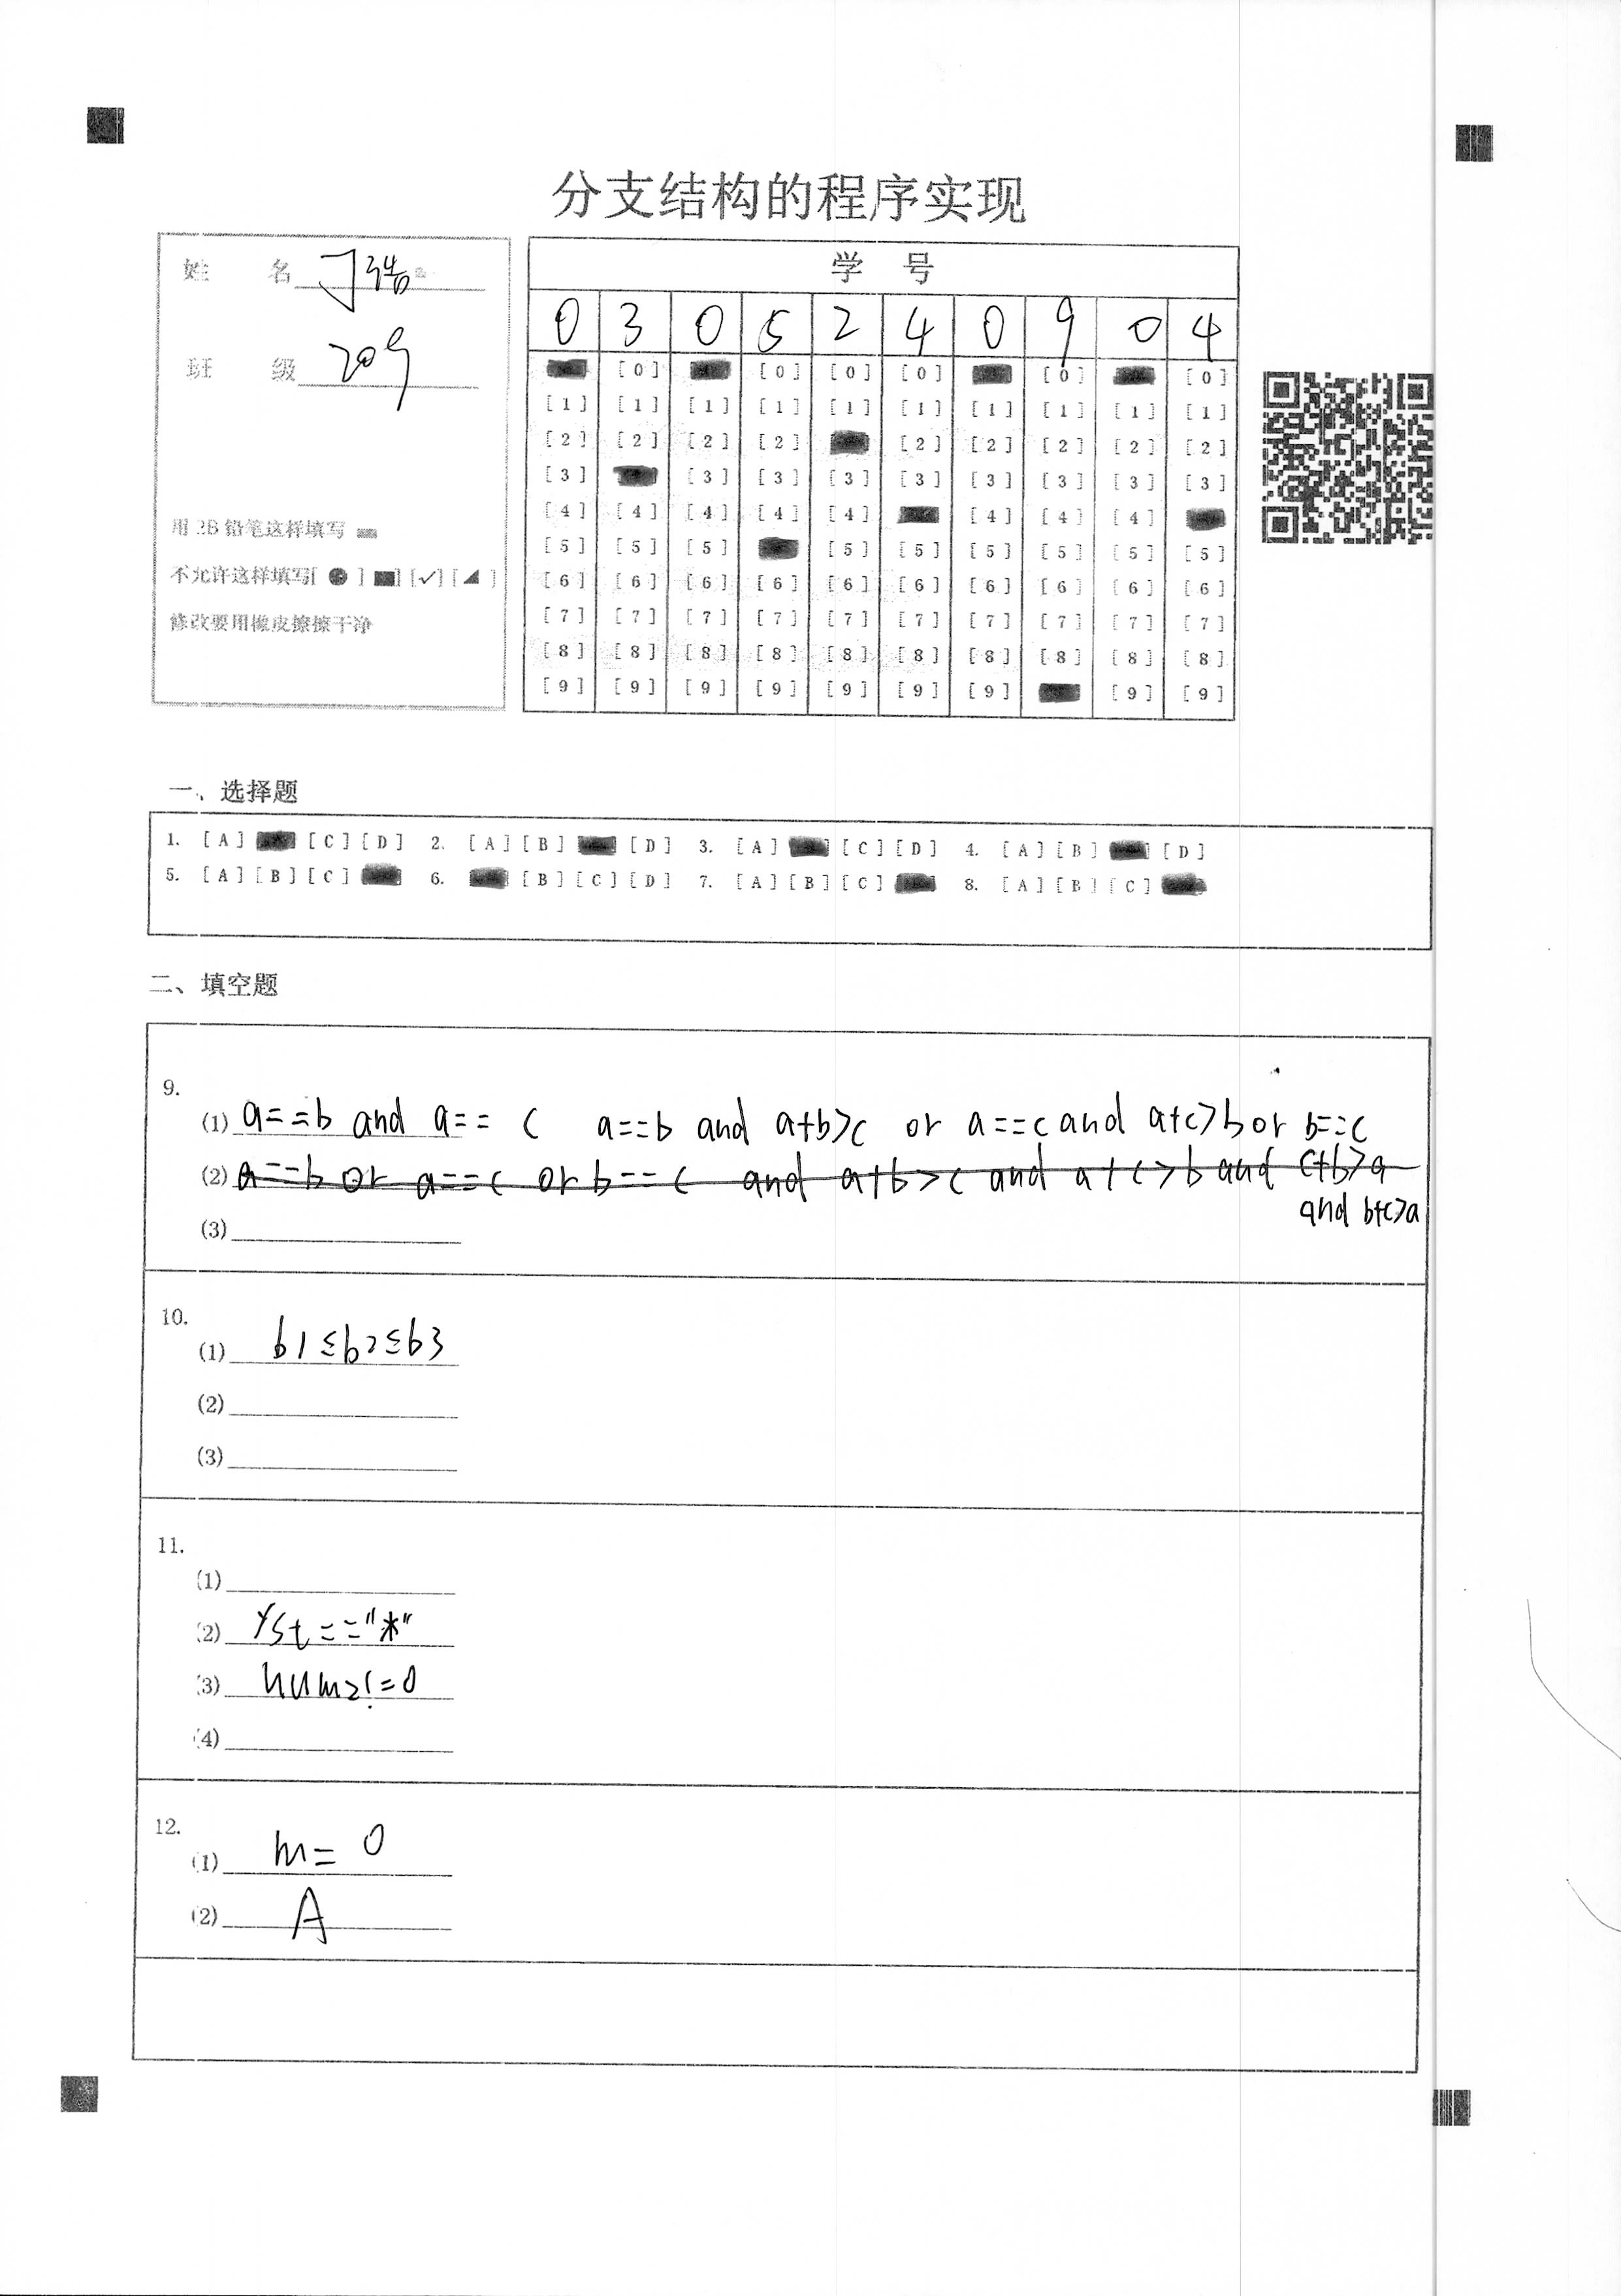 分支结构的程序实现
姓 名 丁
班 级 209
用 2B 铅笔这样填写
不允许这样填写[ ● ] ■] [✓] [◢ ]
修改要用橡皮擦擦干净
学 号
0 3 0 5 2 4 0 9 0 4
[0] [0] [0] [0] [0] [0]
[1] [1] [1] [1] [1] [1] [1] [1] [1] [1]
[2] [2] [2] [2] [2] [2] [2] [2] [2]
[3] [3] [3] [3] [3] [3] [3] [3] [3]
[4] [4] [4] [4] [4] [4] [4] [4]
[5] [5] [5] [5] [5] [5] [5] [5] [5]
[6] [6] [6] [6] [6] [6] [6] [6] [6] [6]
[7] [7] [7] [7] [7] [7] [7] [7] [7] [7]
[8] [8] [8] [8] [8] [8] [8] [8] [8] [8]
[9] [9] [9] [9] [9] [9] [9] [9] [9]
一、选择题
1. [A] [C] [D] 2. [A] [B] [D] 3. [A] [C] [D] 4. [A] [B] [D]
5. [A] [B] [C] 6. [B] [C] [D] 7. [A] [B] [C] 8. [A] [B] [C]
二、填空题
9.
(1) a==b and a== c a==b and a+b>c or a==c and a+c>b or b==c
(2) a==b or a==c or b==c and a+b>c and a+c>b and c+b>a
and b+c>a
(3)
10.
(1) b1≤b2≤b3
(2)
(3)
11.
(1)
(2) yst=="*"
(3) num2!=0
(4)
12.
(1) m= 0
(2) A